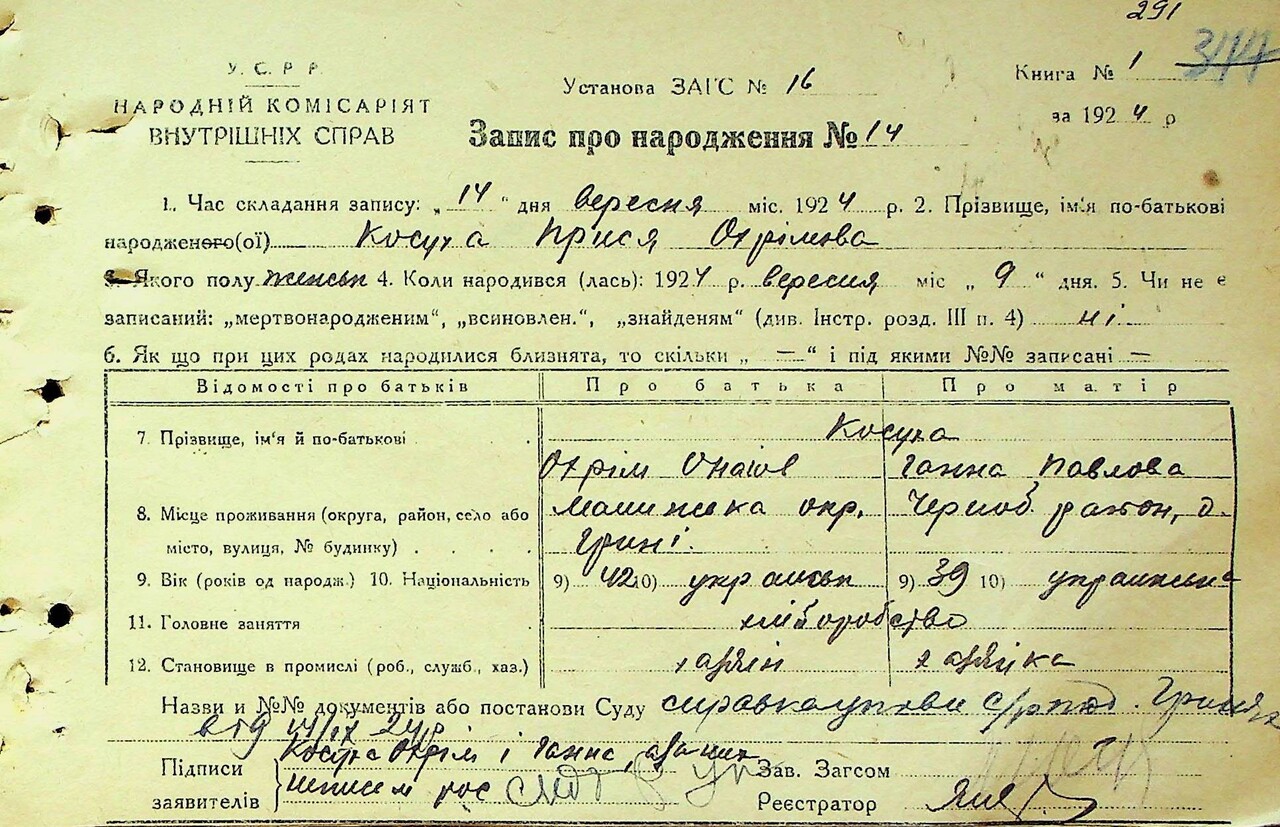 291
344
У. С. Р. Р.
НАРОДНІЙ КОМІСАРІЯТ
ВНУТРІШНІХ СПРАВ
Установа ЗАГС № 16
Книга № 1
за 1924 р
Запис про народження № 14
1. Час складання запису: „14“ дня вересня міс. 1924 р. 2. Прізвище, ім'я по-батькові
народженого(ої) Косуха Прися Охрімова
3. Якого полу женськ 4. Коли народився (лась): 1924 р. вересня міс „9“ дня. 5. Чи не є
записаний: „мертвонародженим“, „всиновлен.“, „знайденям“ (див. Інстр. розд. III п. 4) ні
6. Як що при цих родах народилися близнята, то скільки „—“ і під якими №№ записані —
Відомості про батьків Про батька Про матір
7. Прізвище, ім'я й по-батькові Косуха
Охрім Ганна Павлова
8. Місце проживання (округа, район, село або окр, район, с.
місто, вулиця, № будинку) Грині.
9. Вік (років од народж.) 10. Національність 9) 42 10) 9) 39 10)
11. Головне заняття хліборобство
12. Становище в промислі (роб., служб., хаз.) хазяїн хазяйка
Назви и №№ документів або постанови Суду
Підписи Косуха Охрім і Ганна,
заявителів
Зав. Загсом
Реєстратор